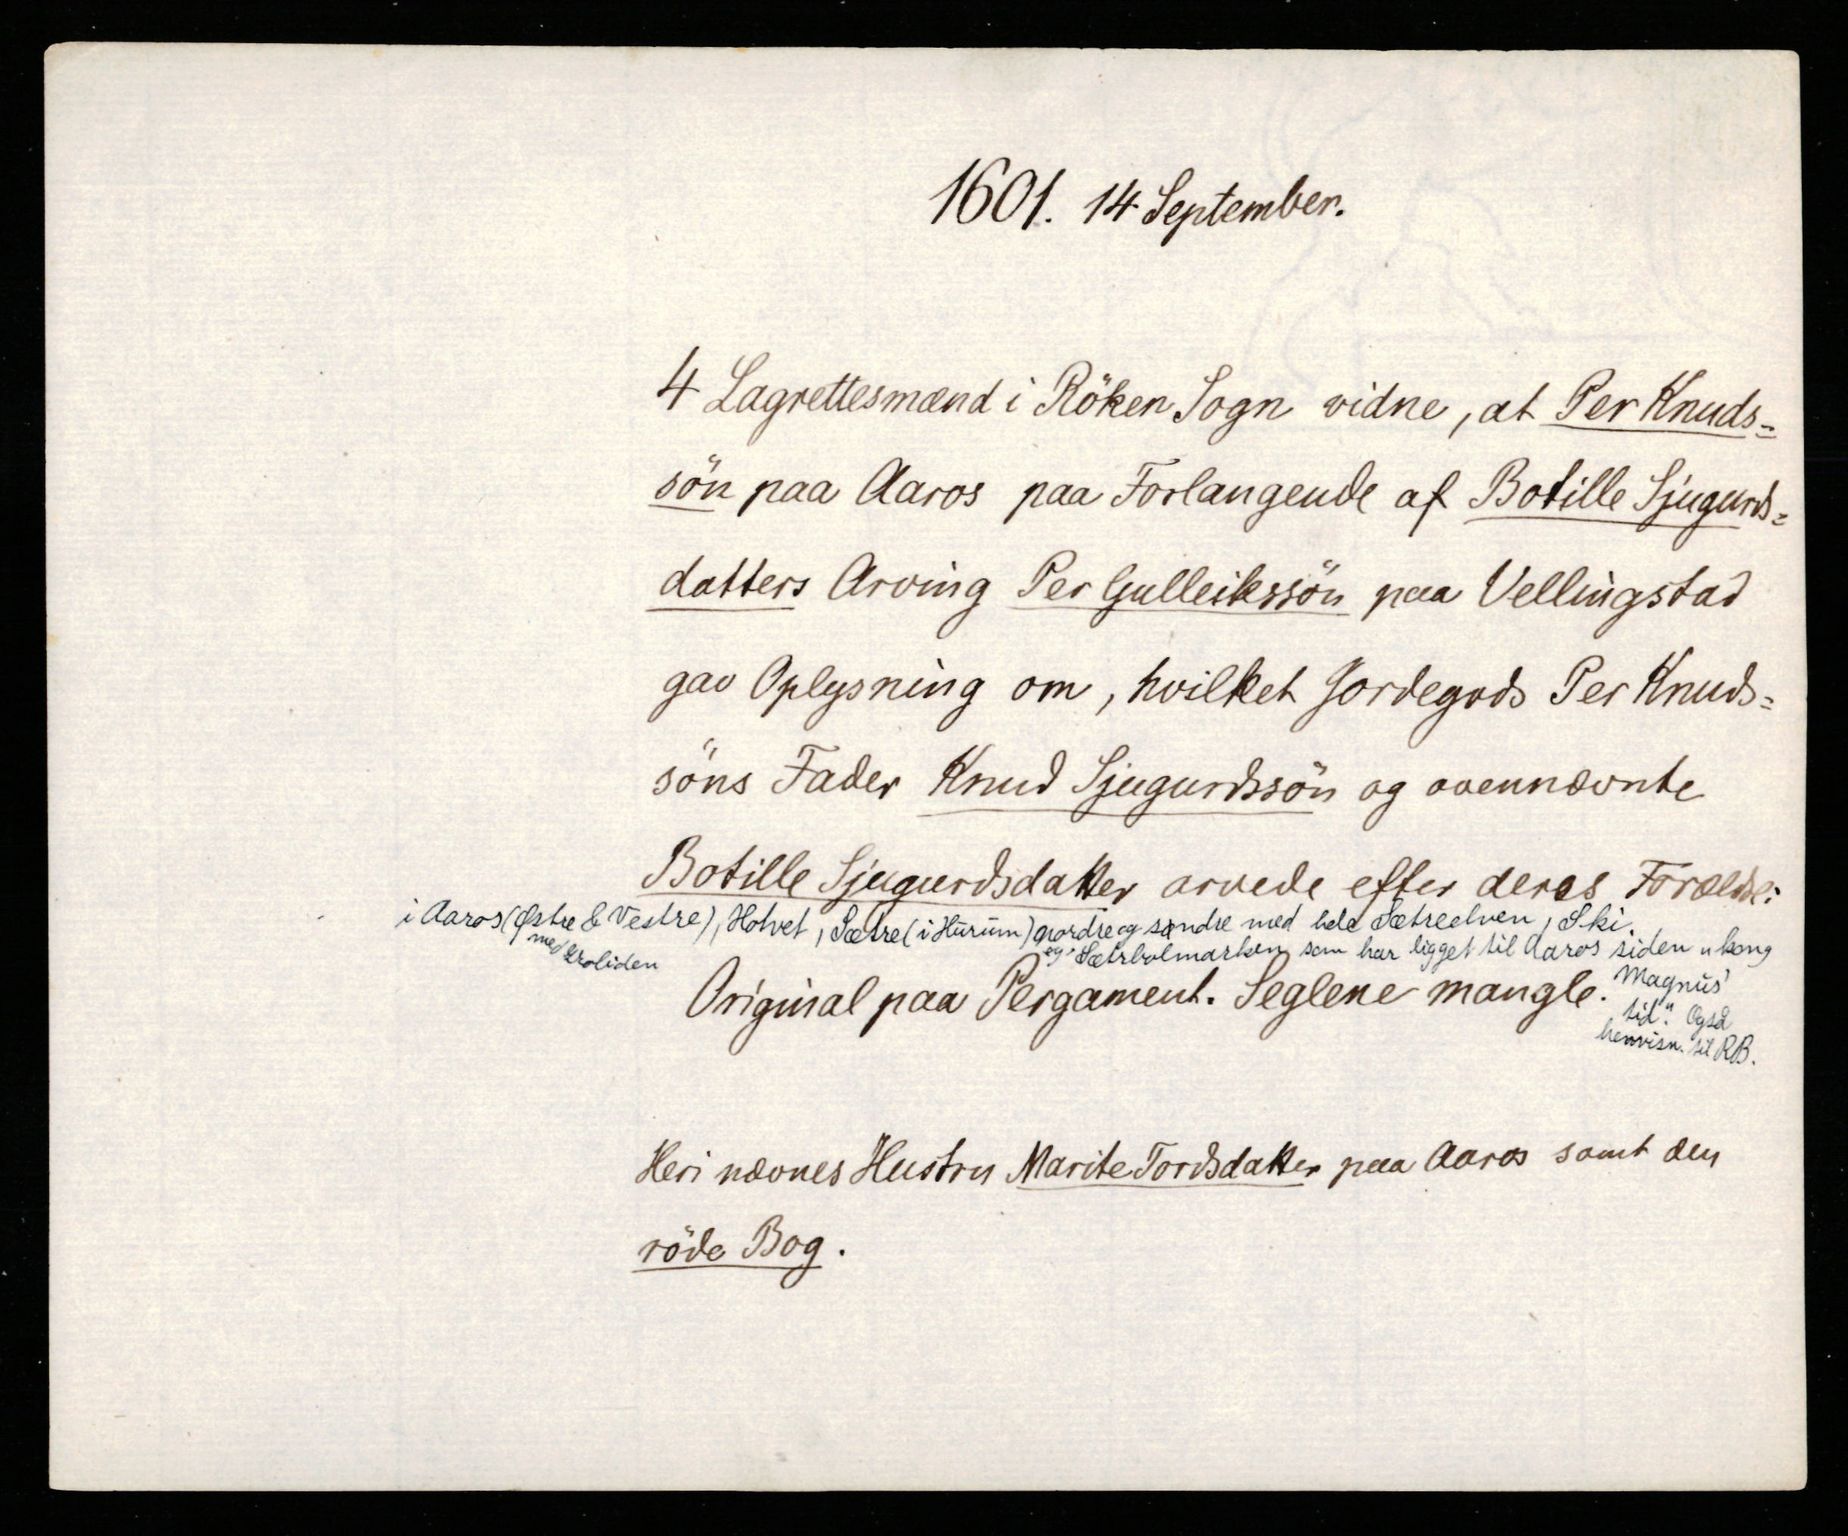 1601. 14 September.
4 Lagrettesmænd i Röken Sogn vidne, at Per Knuds=
sön paa Aaros paa Forlangende af Botille Sjugurds=
datters Arving Per Gulleikssön paa Vellingstad
gav Oplysning om, hvilket Jordegods Per Knuds=
söns Fader Knud Sjugurdssön og ovennævnte
Botille Sjugurdsdatter arvede efter deres Forældre:
i Aaros (Østre & Vestre), Hotvet, Sætre (i Hurum) nordre og søndre med hele Sætreelven, Ski.
med
og Sætrholmarken som har ligget til Aaros siden "kong
Magnus'
tid". Også
henvisn. til RB.
Original paa Pergament. Seglene mangle.
Heri nævnes Hustru Marite Tordsdatter paa Aaros samt den
röde Bog.